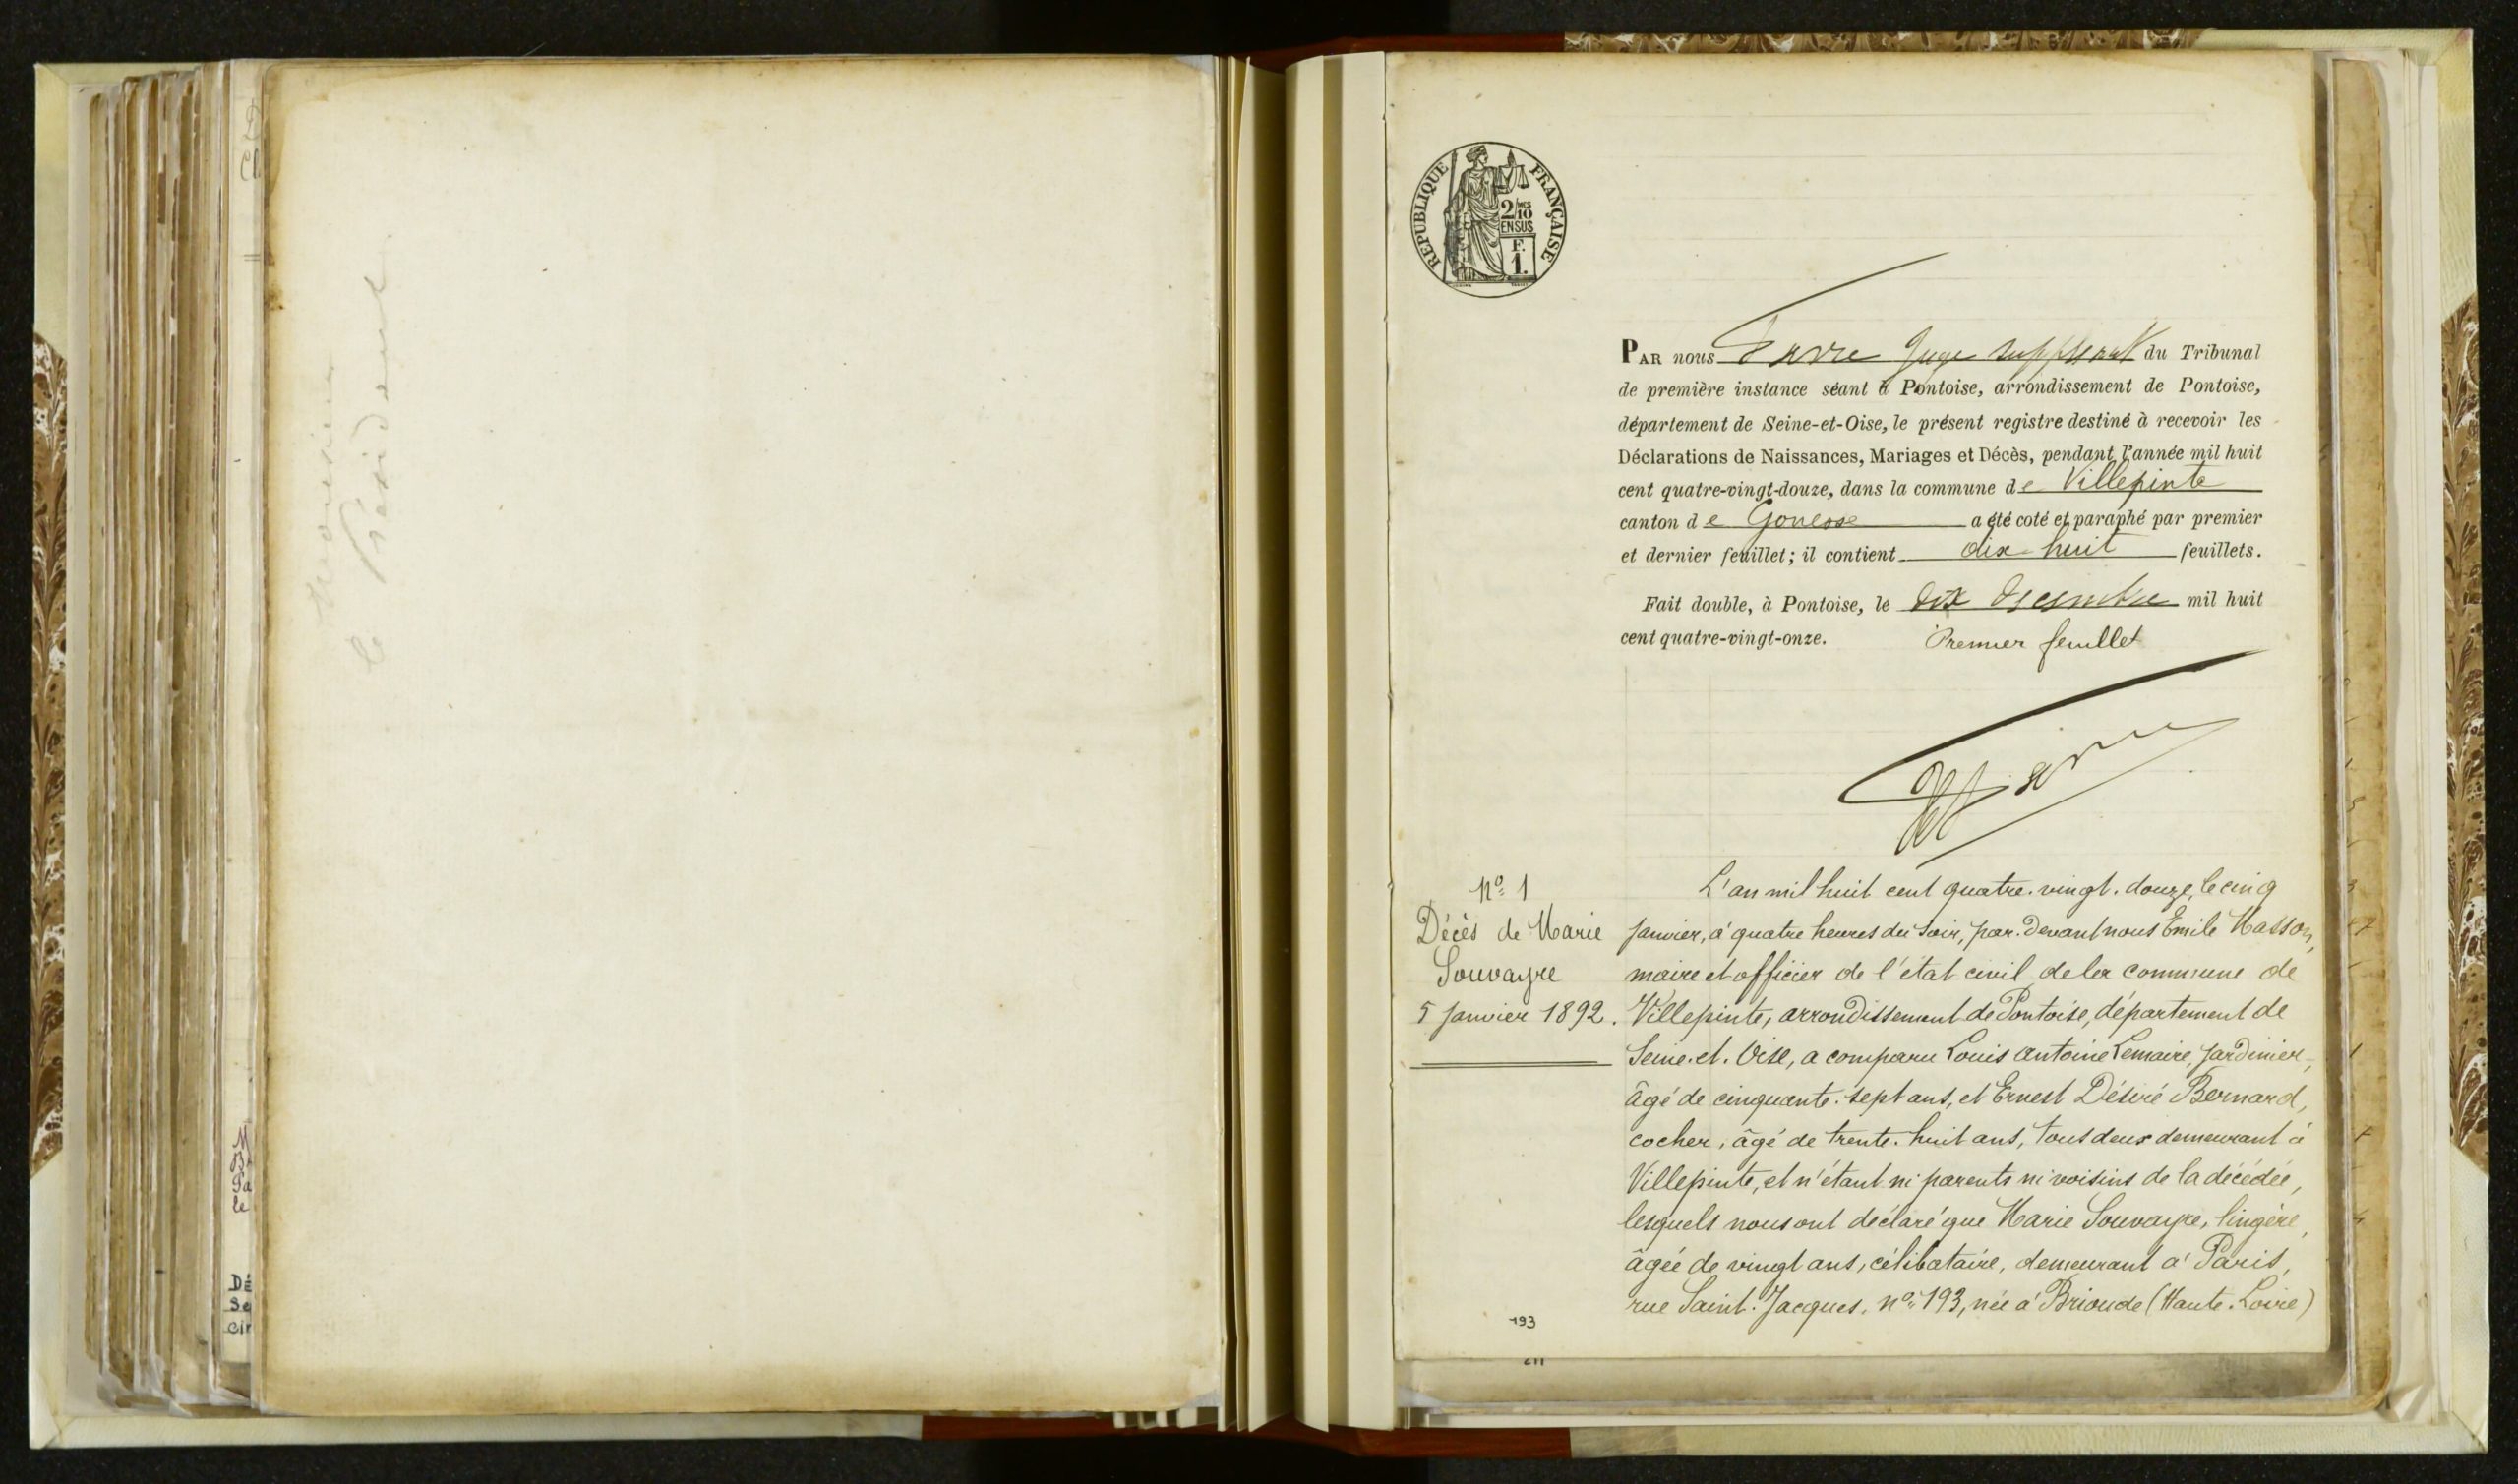 Monsieur
le Président
RÉPUBLIQUE FRANÇAISE
2/10 MES
EN SUS
F.
1.
PAR nous Favre Juge suppléant du Tribunal
de première instance séant à Pontoise, arrondissement de Pontoise,
département de Seine-et-Oise, le présent registre destiné à recevoir les
Déclarations de Naissances, Mariages et Décès, pendant l'année mil huit
cent quatre-vingt-douze, dans la commune de Villepinte
canton de Gonesse a été coté et paraphé par premier
et dernier feuillet; il contient dix-huit feuillets.
Fait double, à Pontoise, le dix décembre mil huit
cent quatre-vingt-onze. Premier feuillet
No 1
Décès de Marie
Souvayre
5 Janvier 1892.
L'an mil huit cent quatre-vingt-douze, le cinq
Janvier, à quatre heures du Soir, par-devant nous Emile Masson,
maire et officier de l'état civil de la commune de
Villepinte, arrondissement de Pontoise, département de
Seine-et-Oise, a comparu Louis Antoine Lemaire, Jardinier,
âgé de cinquante-sept ans, et Ernest Désiré Bernard,
cocher, âgé de trente-huit ans, tous deux demeurant à
Villepinte, et n'étant ni parents ni voisins de la décédée,
lesquels nous ont déclaré que Marie Souvayre, lingère,
âgée de vingt ans, célibataire, demeurant à Paris,
rue Saint-Jacques, no 193, née à Brioude (Haute-Loire)
193